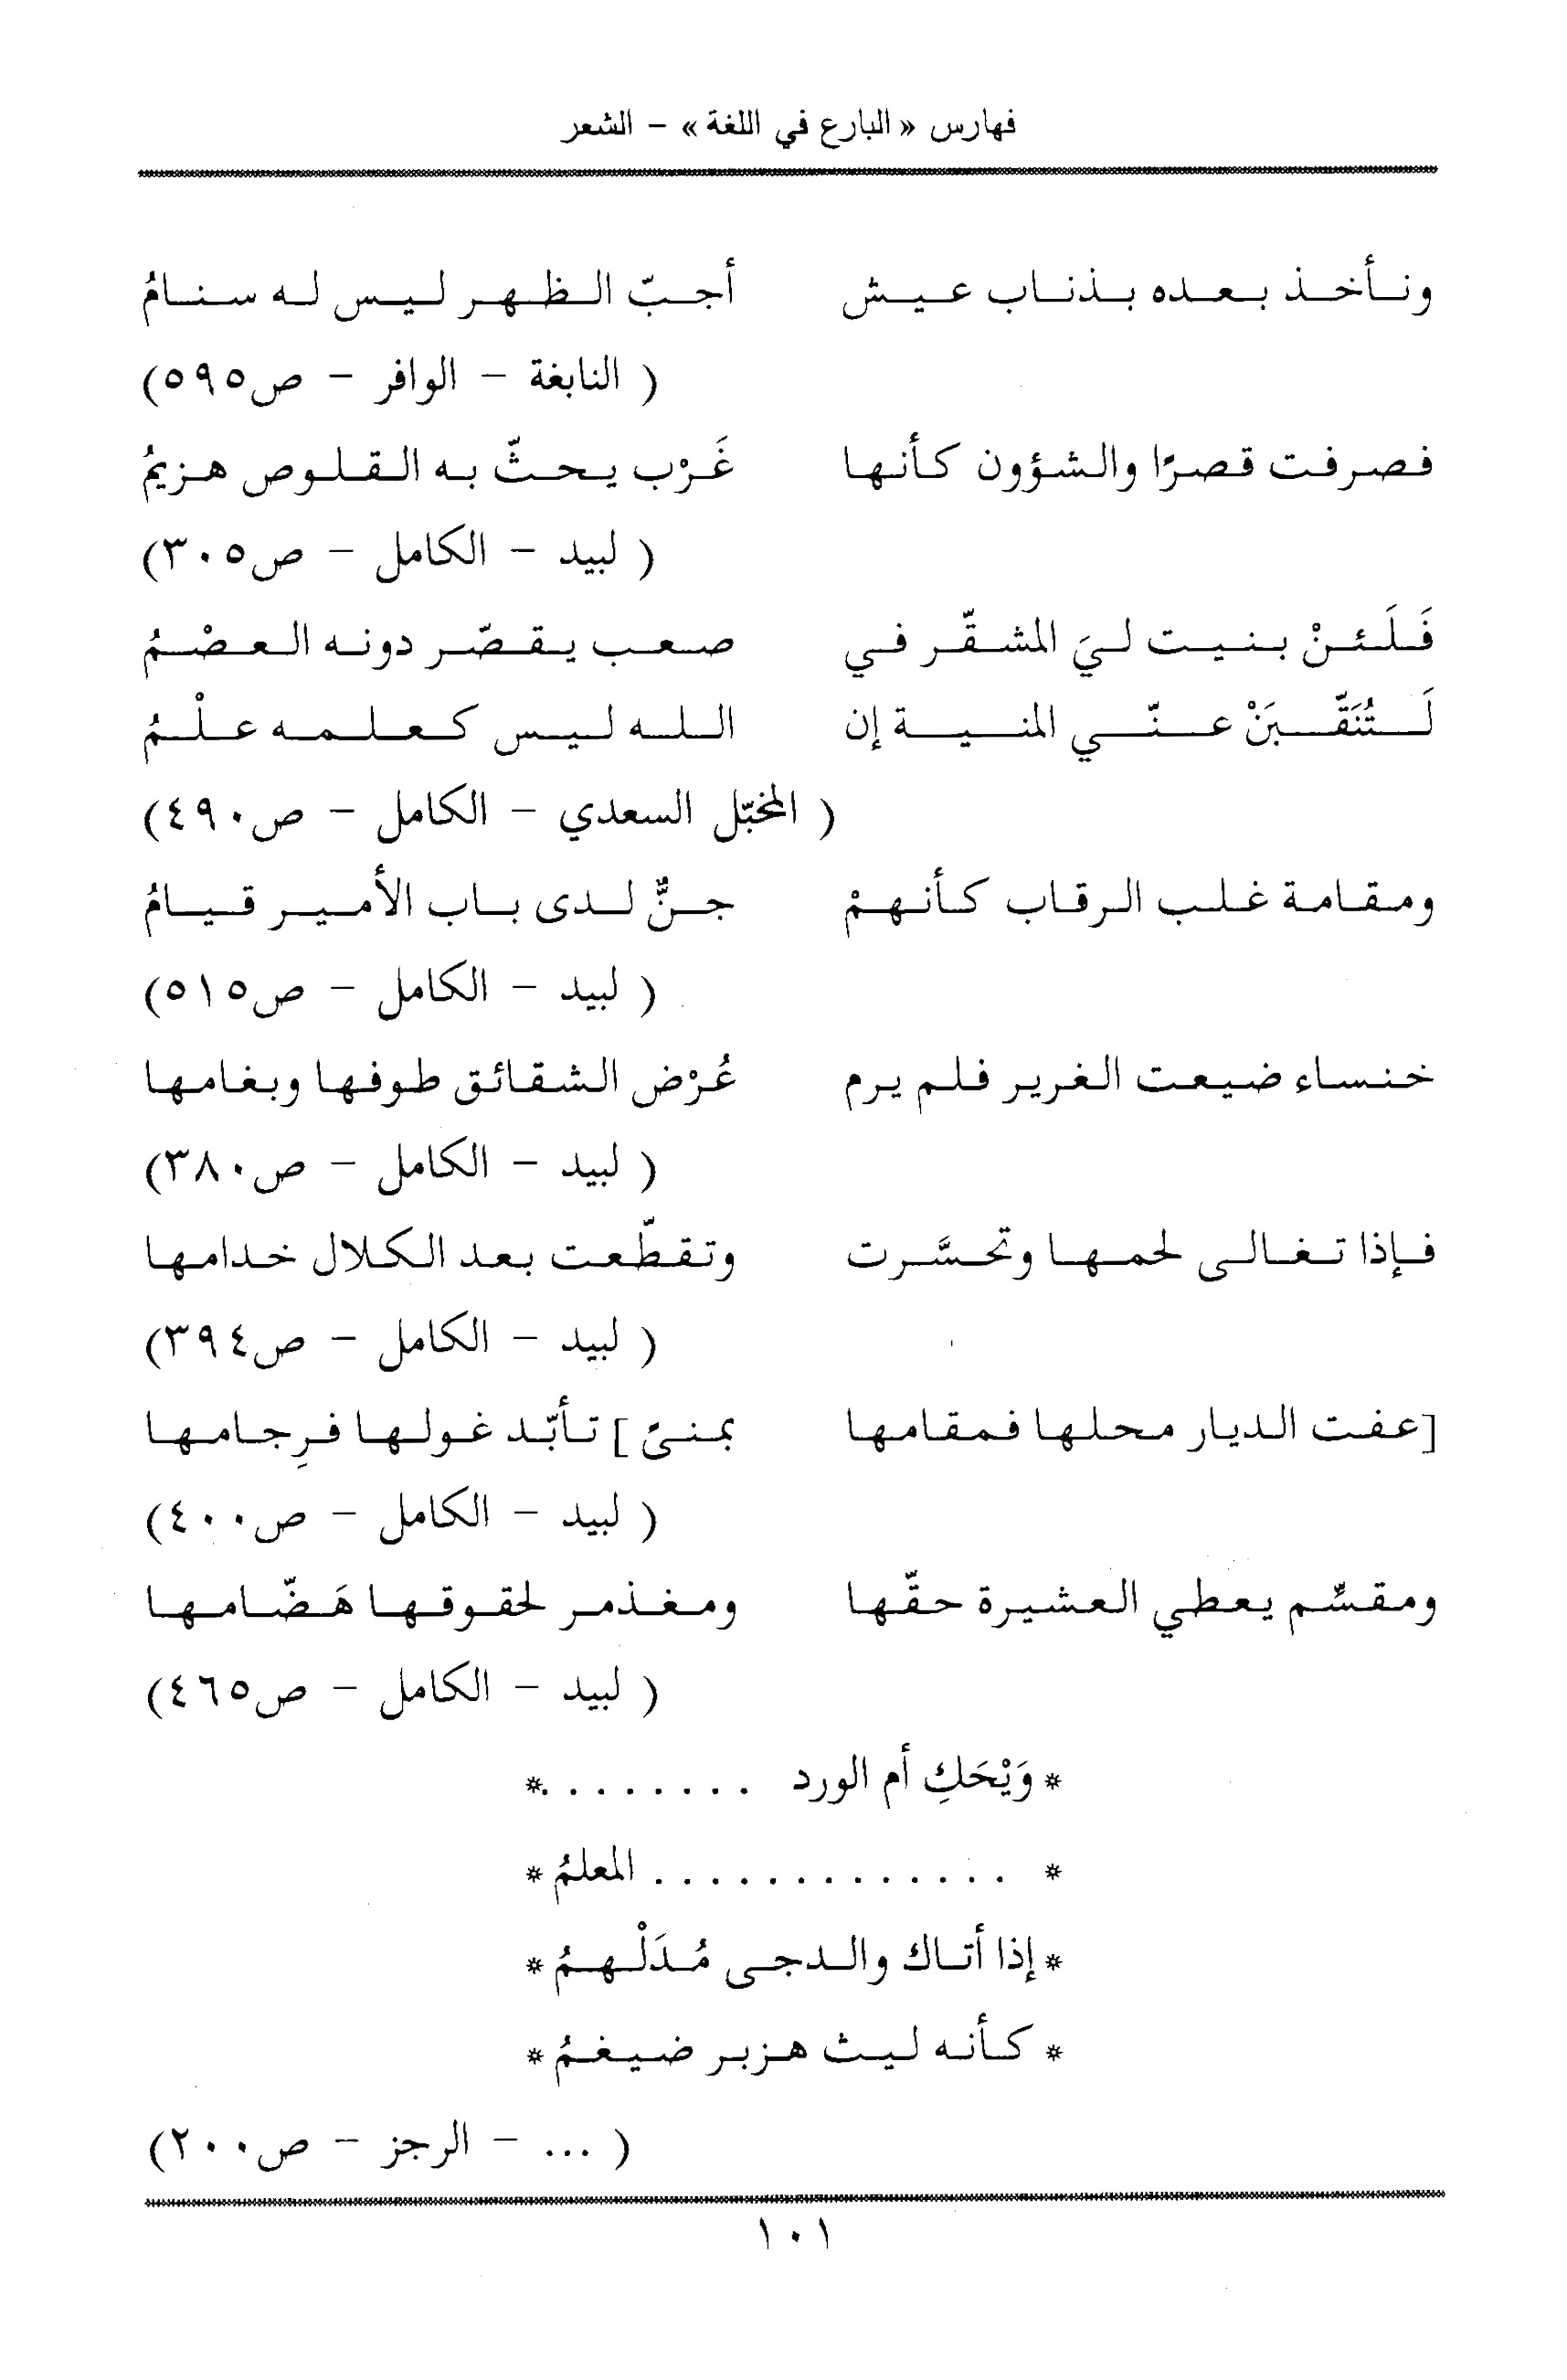 فهارس «البارع في اللغة» - الشعر
ونأخذ بعده بذناب عيش أجبّ الظهر ليس له سنامُ
( النابغة - الوافر - ص٥٩٥)
فصرفت قصرًا والشؤون كأنها غَرْب يحثّ به القلوص هزيمُ
( لبيد - الكامل - ص٣٠٥)
فَلَئنْ بنيت ليَ المشقّر في صعب يقصّر دونه العصْمُ
لَتُنَقّبَنْ عنّي المنية إن الله ليس كعلمه علْمُ
( المخبّل السعدي - الكامل - ص٤٩٠)
ومقامة غلب الرقاب كأنهمْ جنٌّ لدى باب الأمير قيامُ
( لبيد - الكامل - ص٥١٥)
خنساء ضيعت الغرير فلم يرم عُرْض الشقائق طوفها وبغامها
( لبيد - الكامل - ص٣٨٠)
فإذا تغالى لحمها وتحسَّرت وتقطّعت بعد الكلال خدامها
( لبيد - الكامل - ص٣٩٤)
[عفت الديار محلها فمقامها بمنىً ] تأبّد غولها فرِجامها
( لبيد - الكامل - ص٤٠٠)
ومقسِّم يعطي العشيرة حقّها ومغذمر لحقوقها هَضّامها
( لبيد - الكامل - ص٤٦٥)
* وَيْحَكِ أم الورد ........*
* ............. المعلمُ *
* إذا أتاك والدجى مُدَلْهمُ *
* كأنه ليث هزبر ضيغمُ *
( ... - الرجز - ص٢٠٠)
١٠١